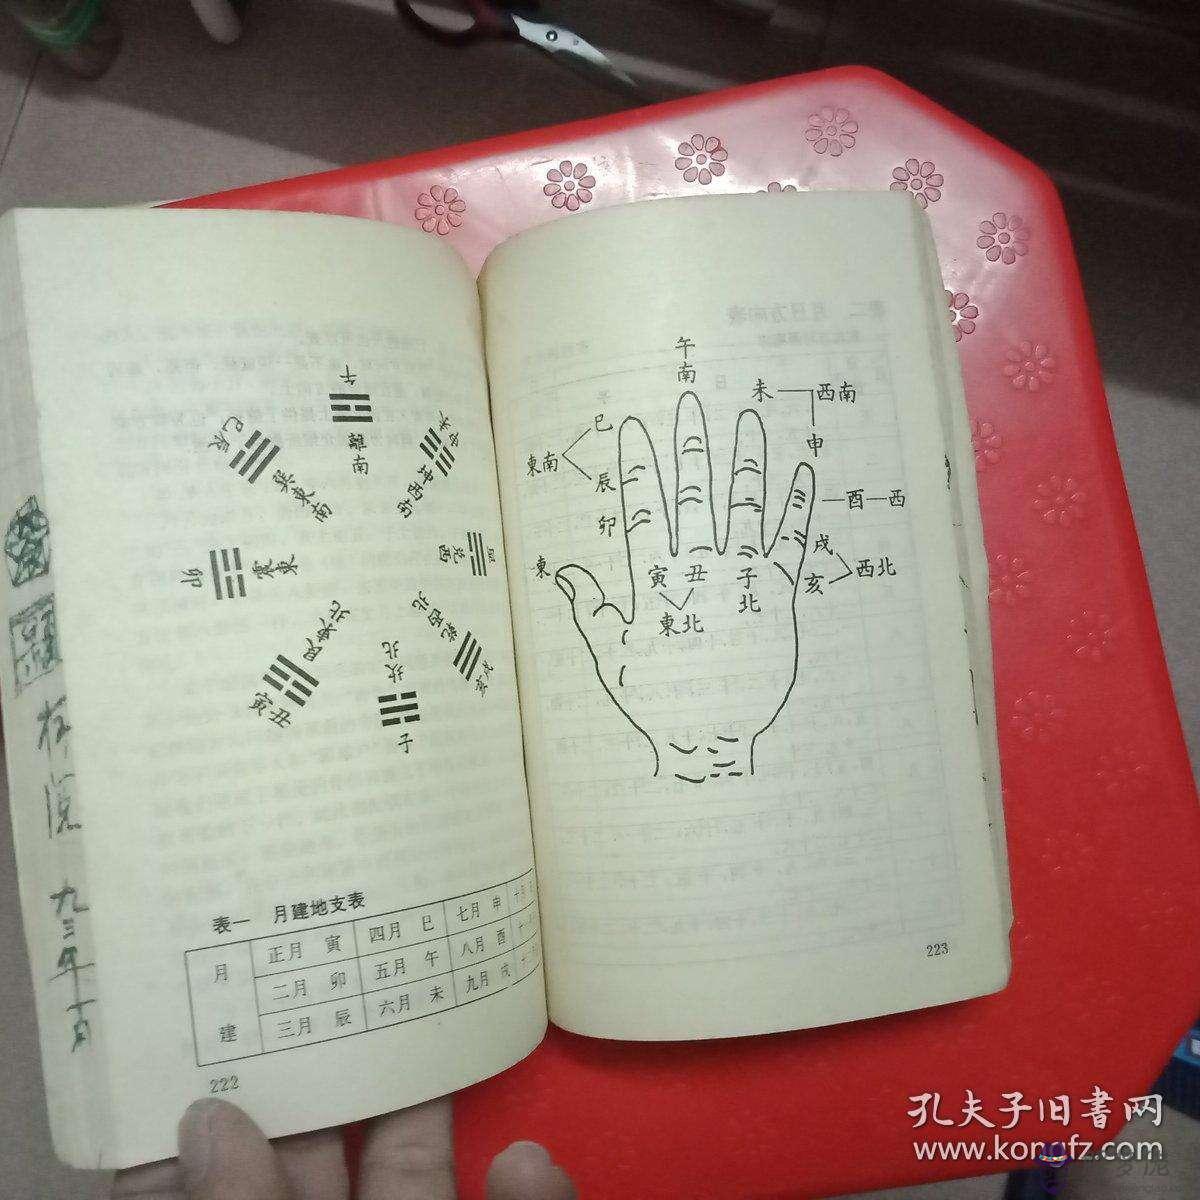 午
離
南
未申
坤西南
巳辰
巽東南
卯
震東
兌西
酉
寅丑
艮東北
坎北
子
表一 月建地支表
月建
正月 寅 四月 巳 七月 申 十月
二月 卯 五月 午 八月 酉 十一
三月 辰 六月 未 九月 戌 十二
222
九三年
午
南
未 西南
申
巳
東南
辰
卯
酉 西
戌
亥 西北
東
寅 丑
東北
子
北
223
孔夫子旧書网
www.kongfz.com